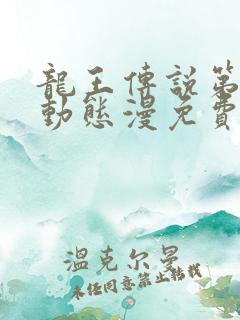 龍王傳說第
動態漫免費
溫克尔曼
未任同意禁止转载